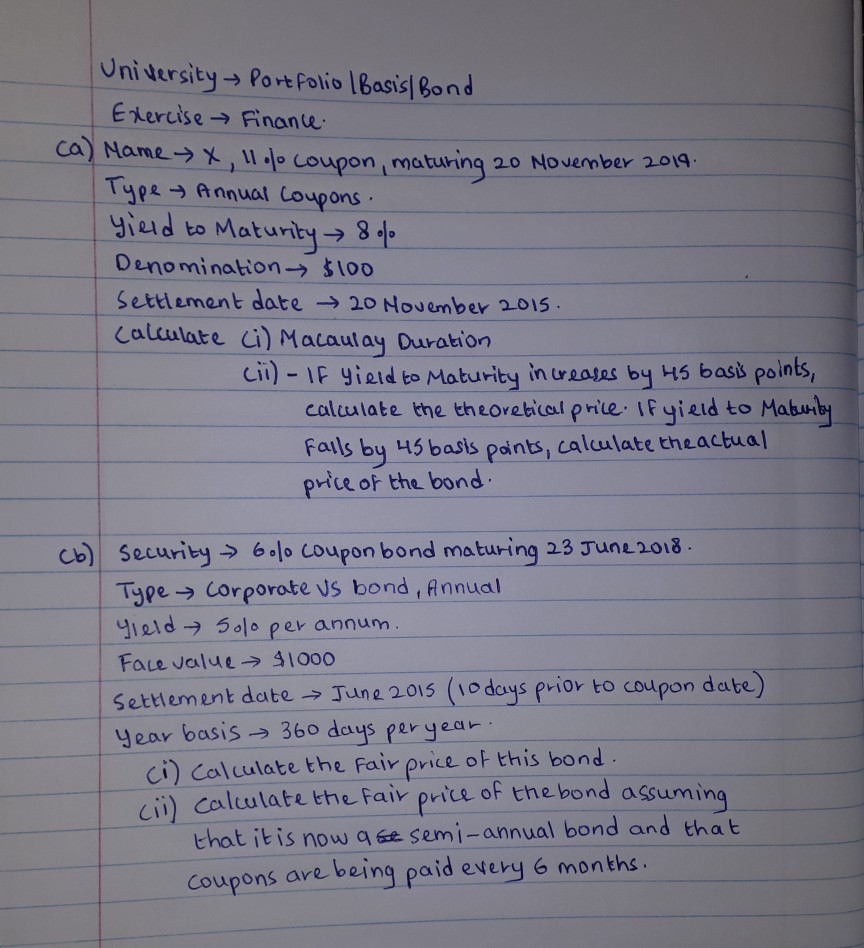 University → Portfolio|Basis|Bond
Exercise → Finance.
(a) Name → X, 11% coupon, maturing 20 November 2019.
Type → Annual Coupons.
Yield to Maturity → 8%
Denomination → $100
Settlement date → 20 November 2015.
Calculate (i) Macaulay Duration
(ii) - If Yield to Maturity increases by 45 basis points,
calculate the theoretical price. If yield to Maturity
falls by 45 basis points, calculate the actual
price of the bond.
(b) Security → 6% coupon bond maturing 23 June 2018.
Type → Corporate US bond, Annual
Yield → 5% per annum.
Face value → $1000
Settlement date → June 2015 (10 days prior to coupon date)
Year basis → 360 days per year.
(i) Calculate the Fair price of this bond.
(ii) Calculate the Fair price of the bond assuming
that it is now a semi-annual bond and that
coupons are being paid every 6 months.